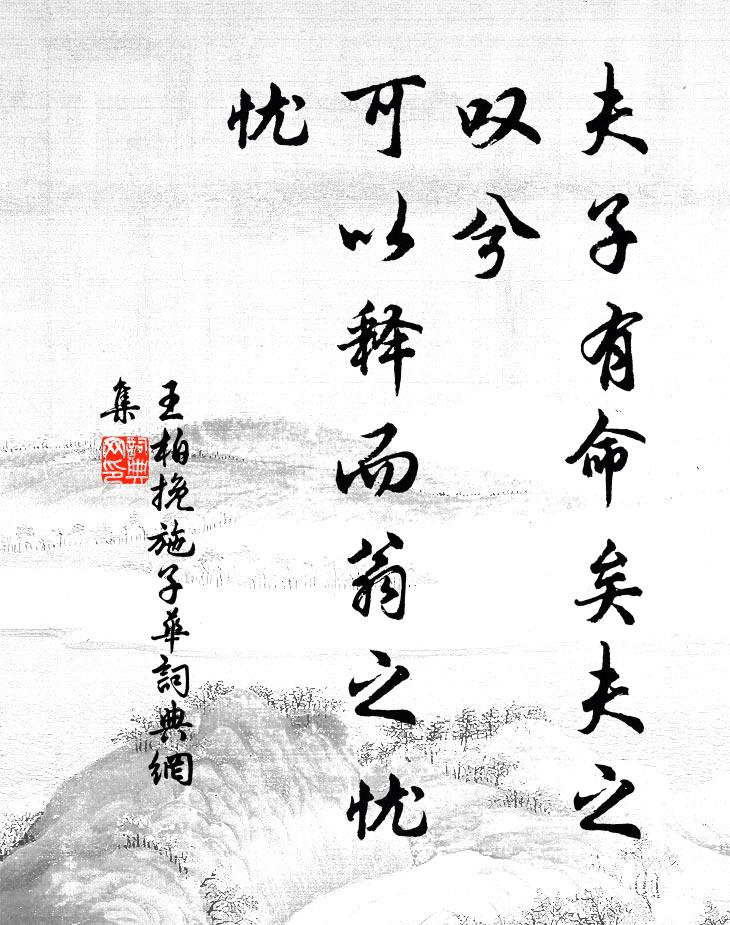 夫子有命矣夫之
叹兮
可以释而翁之忧
忧
王柏挽施子华詞典網
集
詞典网印